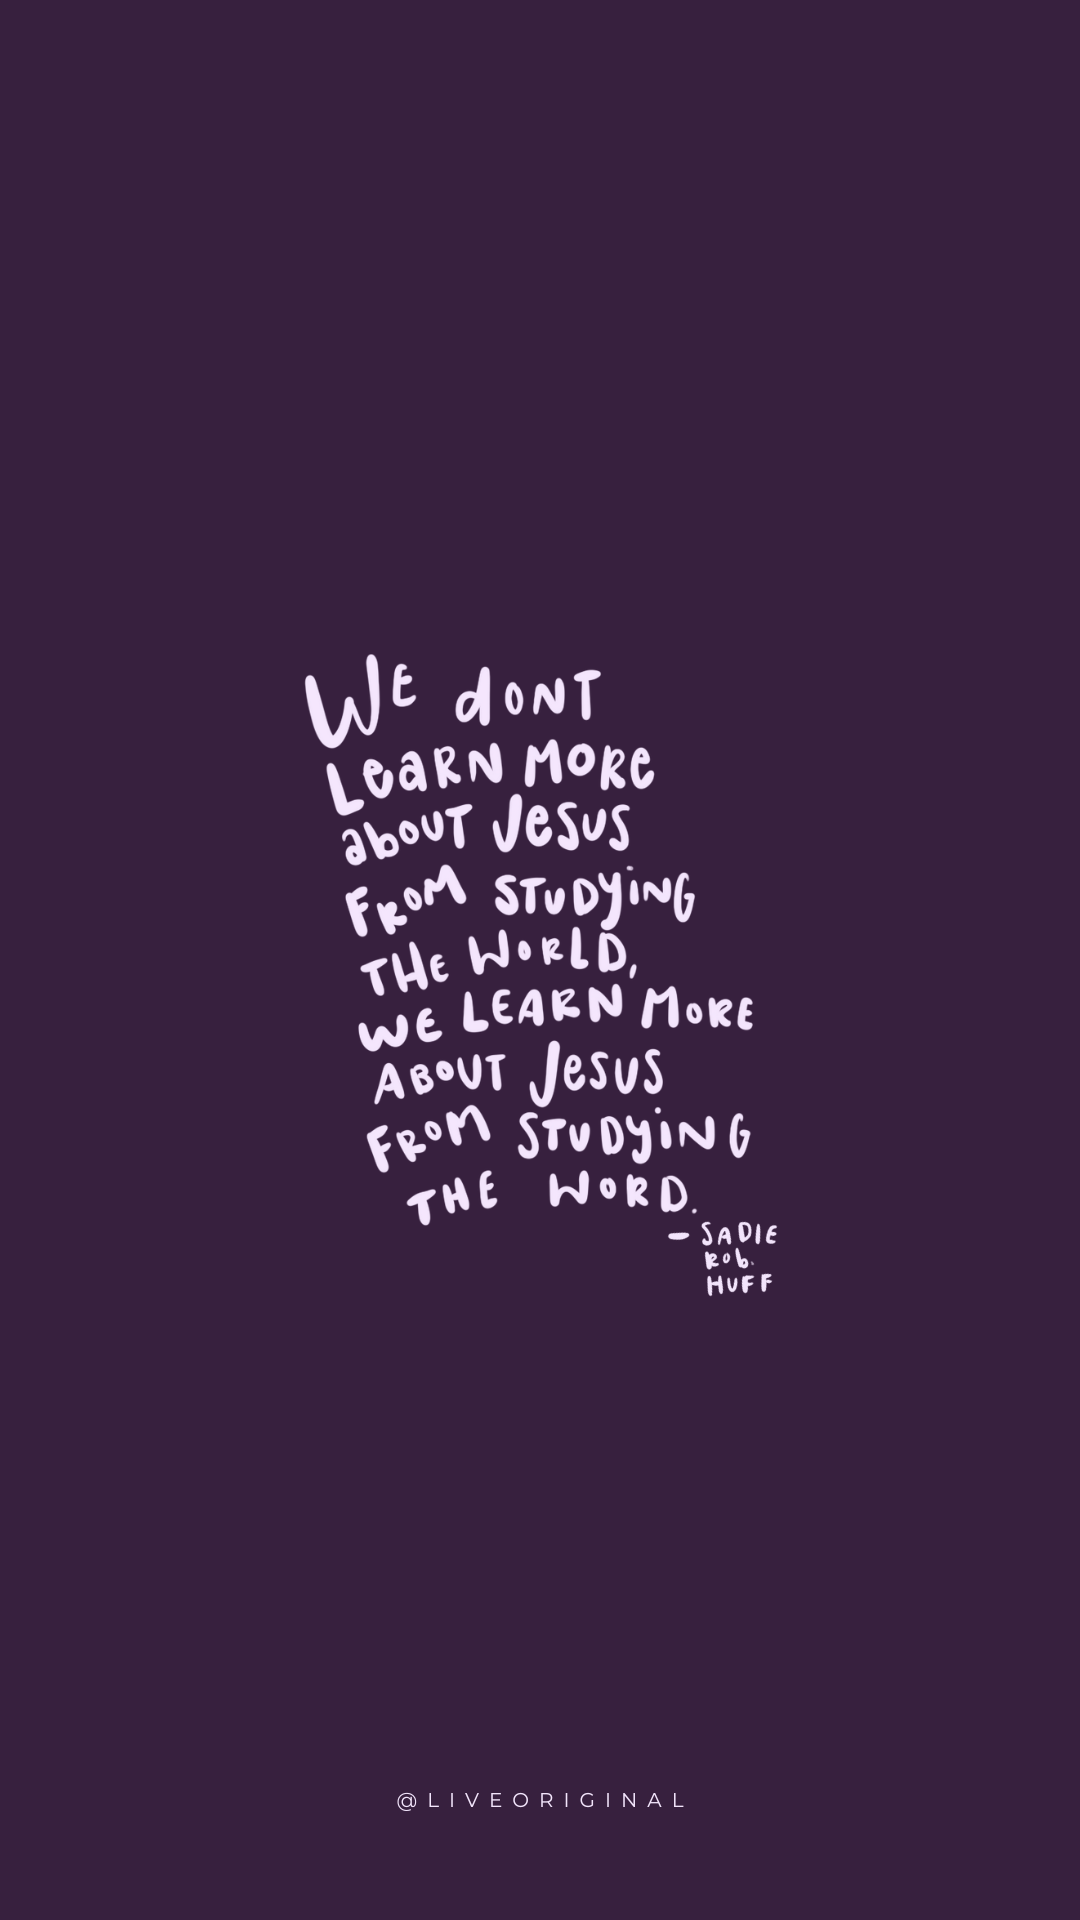 We dont
Learn more
about Jesus
from studying
the world,
we learn more
about Jesus
from studying
the word.
- Sadie
Rob.
Huff
@LIVEORIGINAL